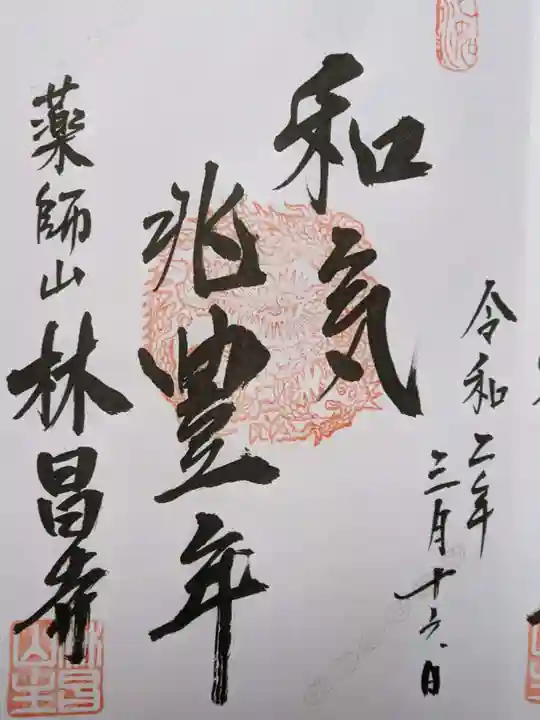 令和二年
三月十六日
和気
兆豊年
薬師山林昌寺